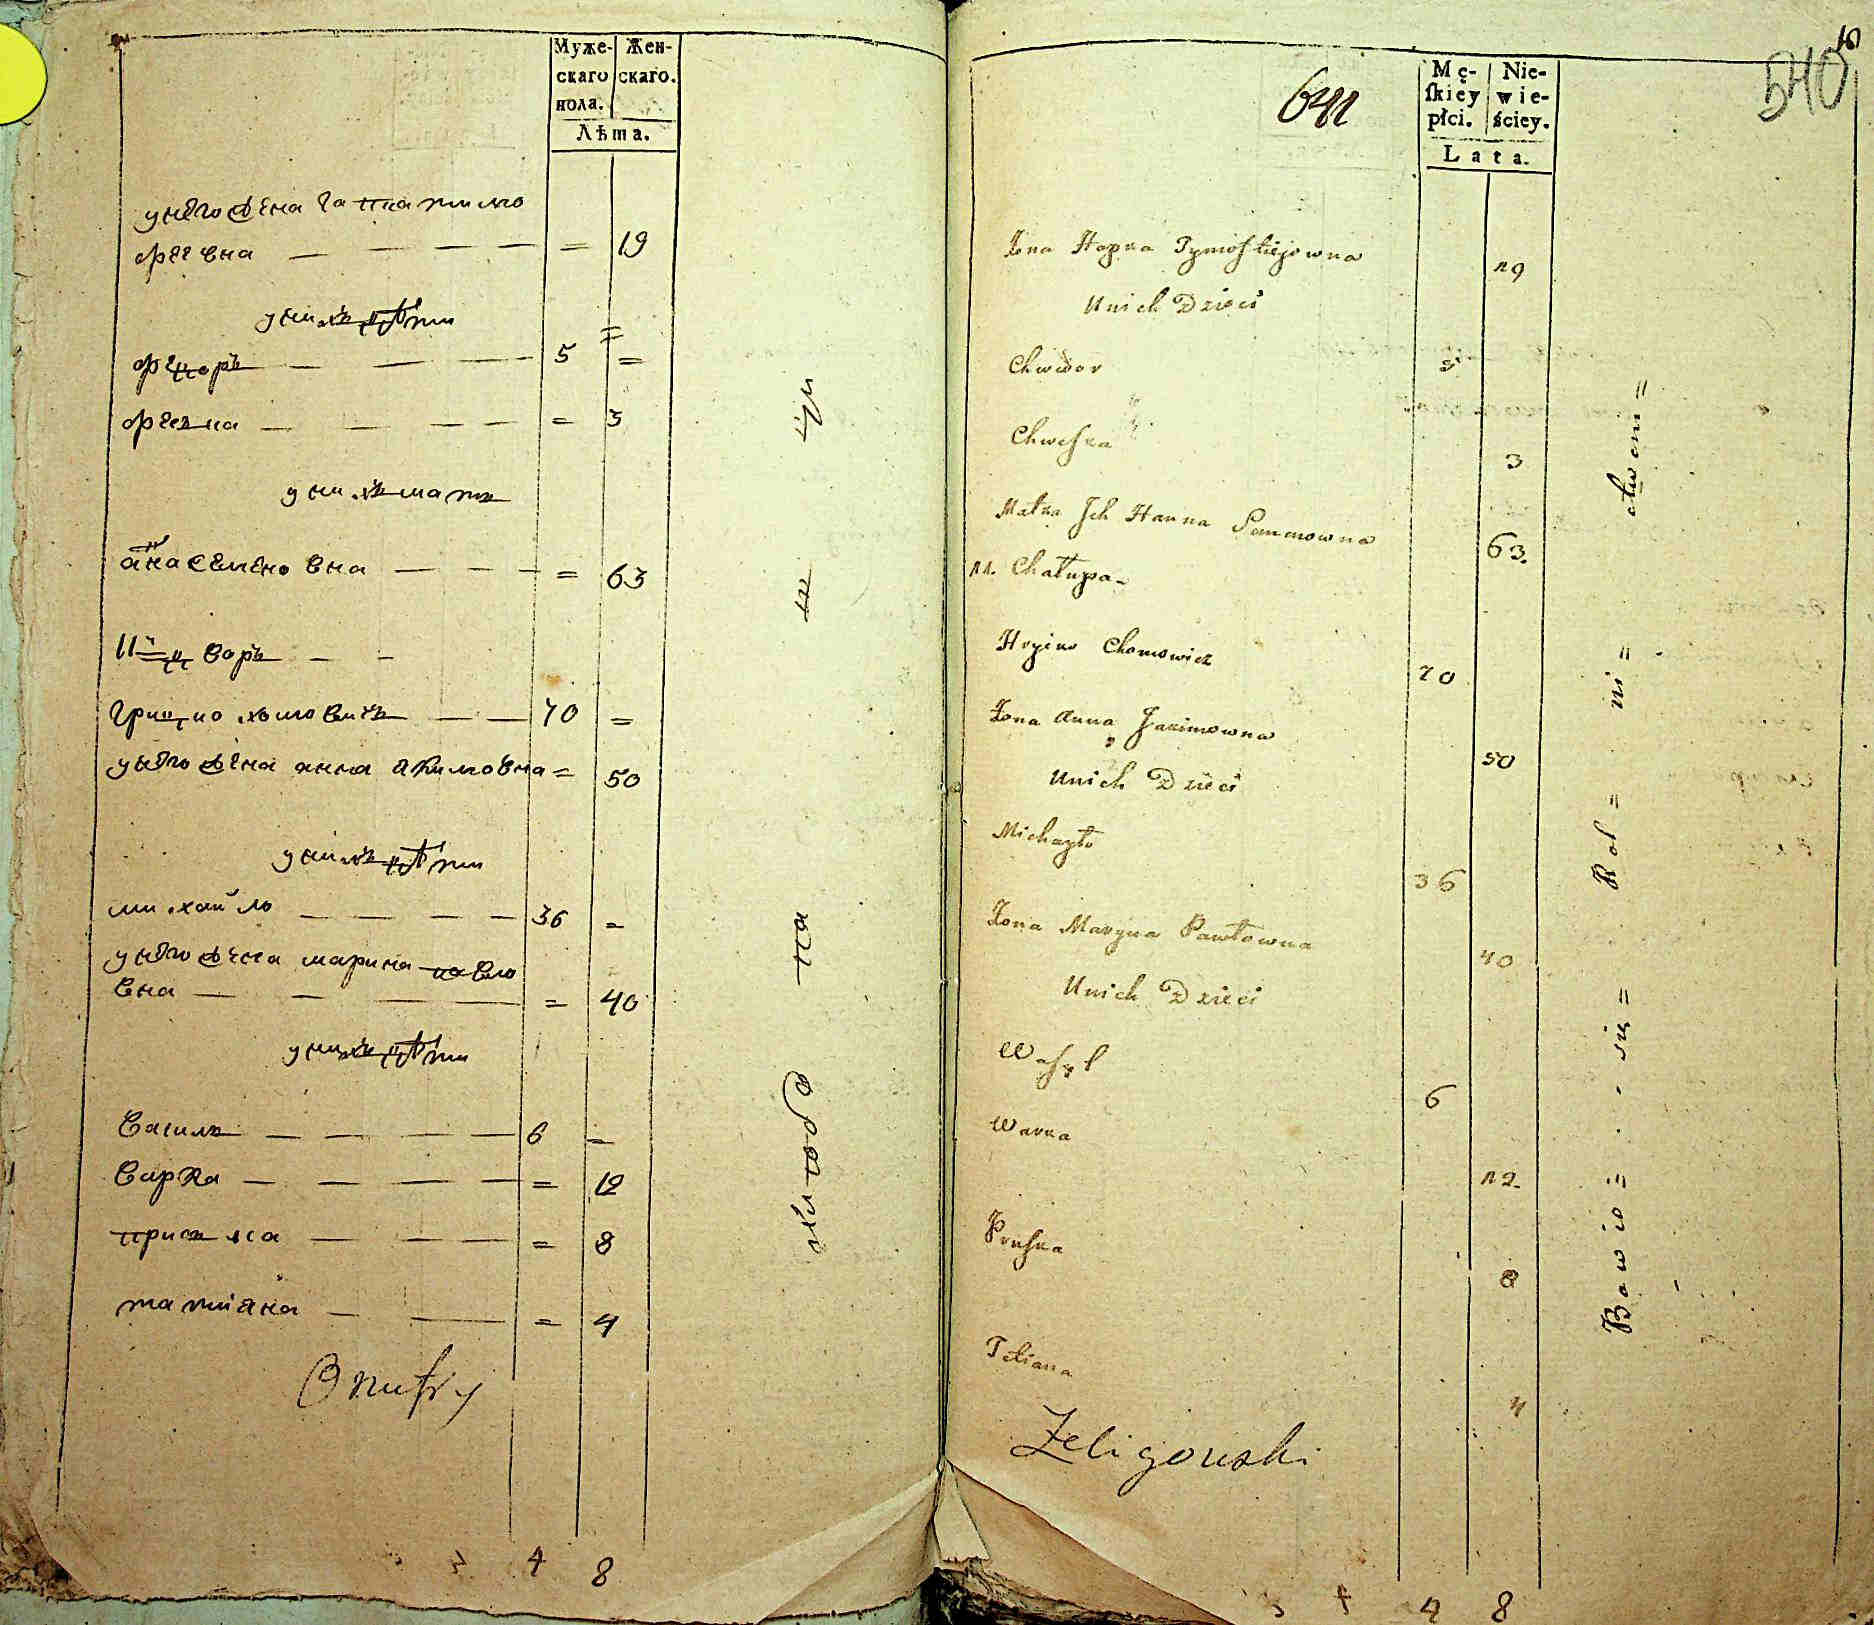 Муже-
скаго
пола.
Жен-
скаго.
Лѣта.
унего жена гапка тимо
ѳеевна — — — — = 19
унихъ дѣти
ѳедоръ — — — 5 =
ѳескa — — — — = 3
унихъ мать
анна семеновна — — — = 63
11 й дворъ — —
грицко хомовичъ — — 70 =
унего жена анна акимовна = 50
унихъ дѣти
михайло — — — — 36 =
унего жена марина павло
вна — — — — = 40
унихъ дѣти
василь — — — — 6 =
варка — — — — = 12
приська — — — = 8
татияна — — = 4
Onufry
4 8
641
540
Mę-
skiey
płci.
Nie-
wie-
ściey.
Lata.
Żona Hapka Tymofiiejowna 19
Unich Dzieci
Chwedor 5
Chweska 3
Matka Ich Hanna Semenowna 63.
11. Chałupa
Hryćko Chomowicz 70
Żona Anna Jakimowna 50
Unich Dzieci
Michayło 36
Żona Maryna Pawłowna 40
Unich Dzieci
Wasyl 6
Warka 12
Pruska 8
Tetiana 4
Żeligowski
4 8
Bawio = . . się = Rol = ni = ctwem =